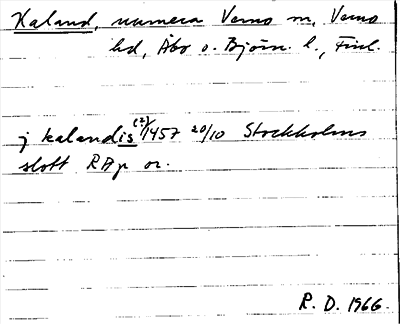 Kaland, numera Verno m, Verno
hd, Åbo o. Björn. l., Finl.
(?)
j kalandis 1457 20/10 Stockholms
slott RAp or.
R. D. 1966.